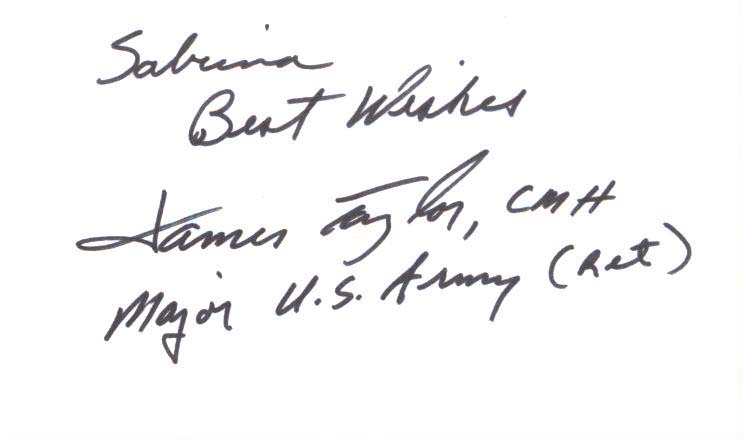 Sabrina
Best Wishes
James Taylor, CMH
Major U.S. Army (Ret)